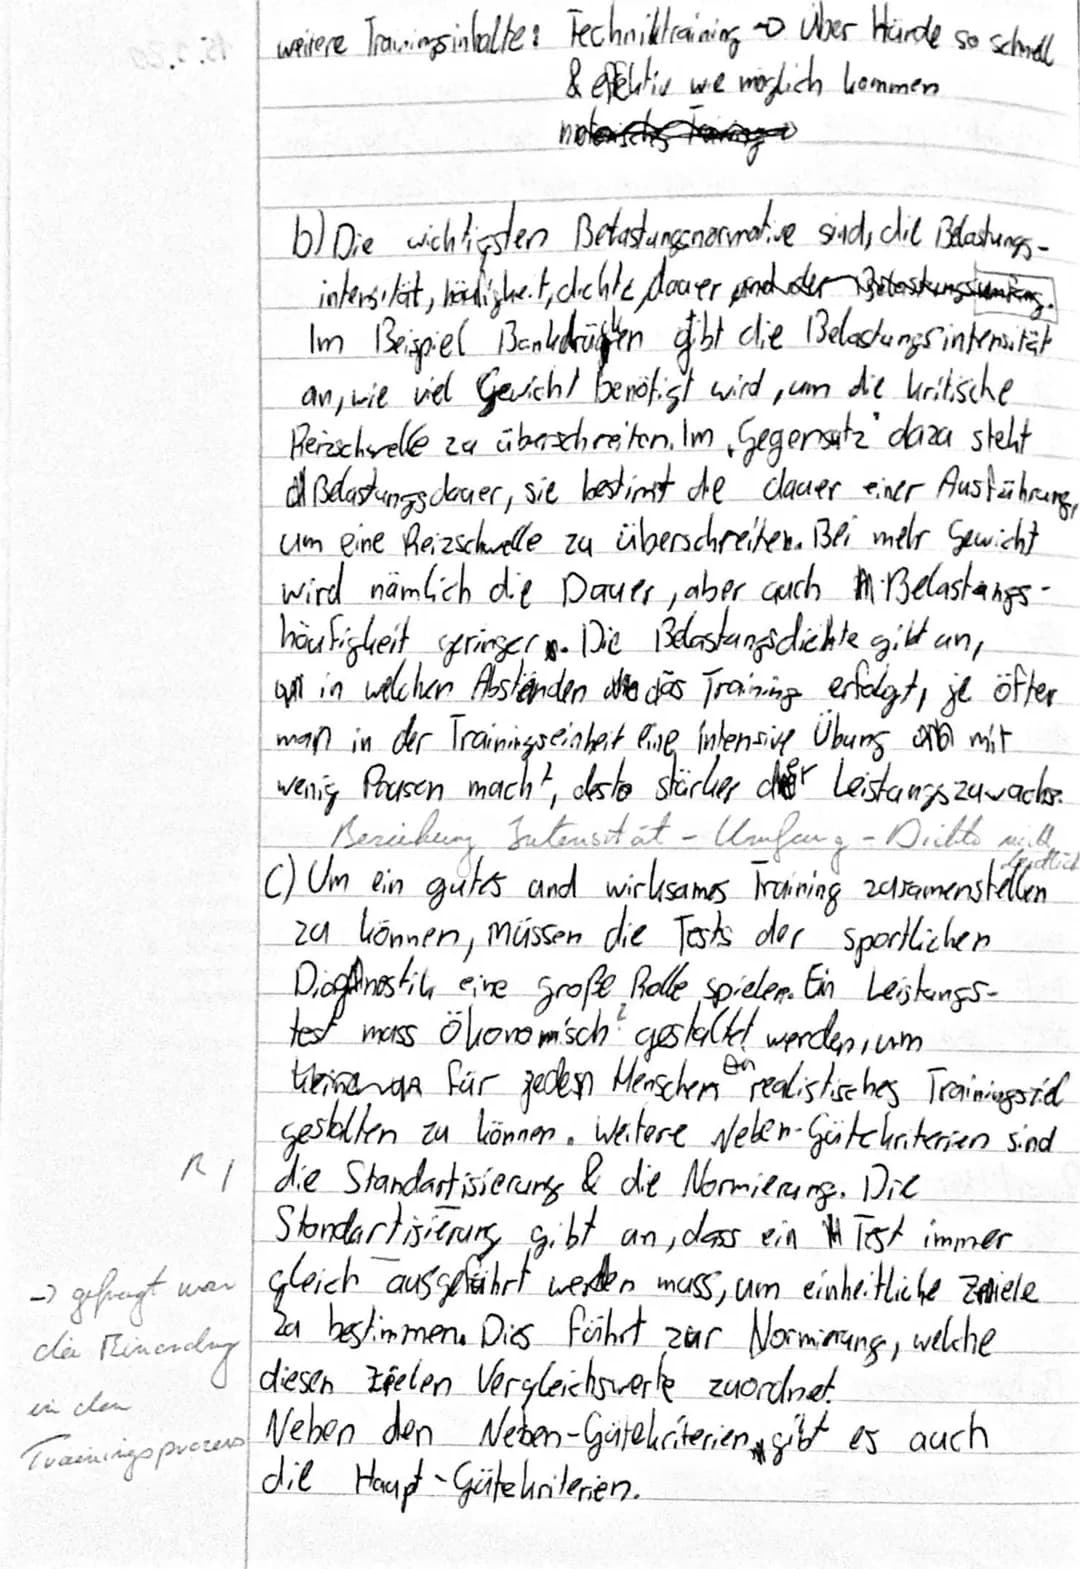 weitere Trainingsinhalte: Techniktraining → Über Hürde so schnell
& effektiv wie möglich kommen
b) Die wichtigsten Belastungsnormative sind, die Belastungs-
intensität, häufigkeit, dichte, dauer und der Belastungsumfang.
Im Beispiel Bankdrücken gibt die Belastungsintensität
an, wie viel Gewicht benötigt wird, um die kritische
Reizschwelle zu überschreiten. Im „Gegensatz" dazu steht
d Belastungsdauer, sie bestimt die dauer einer Ausführung,
um eine Reizschwelle zu überschreiten. Bei mehr Gewicht
wird nämlich die Dauer, aber auch Belastungs-
häufigkeit geringer. Die Belastungsdichte gibt an,
in welchen Abständen das Training erfolgt, je öfter
man in der Trainingseinheit eine intensive Übung mit
wenig Pausen macht, desto stärker der Leistungszuwachs.
Beziehung Intensität - Umfang - Dichte nicht
deutlich
c) Um ein gutes und wirksames Training zusammenstellen
zu können, müssen die Tests der sportlichen
Diagnostik eine große Rolle spielen. Ein Leistungs-
test muss Ökonomisch ? gestaltet werden, um
für jeden Menschen ein realistisches Trainingsziel
gestalten zu können. Weitere Neben-Gütekriterien sind
R | die Standartisierung & die Normierung. Die
Standartisierung gibt an, dass ein Test immer
gleich ausgeführt werden muss, um einheitliche Ziele
zu bestimmen. Dies führt zur Normierung, welche
diesen Zielen Vergleichswerte zuordnet.
Neben den Neben-Gütekriterien gibt es auch
die Haupt-Gütekriterien.
→ gefragt war
die Einordng
in den
Trainingsprozess